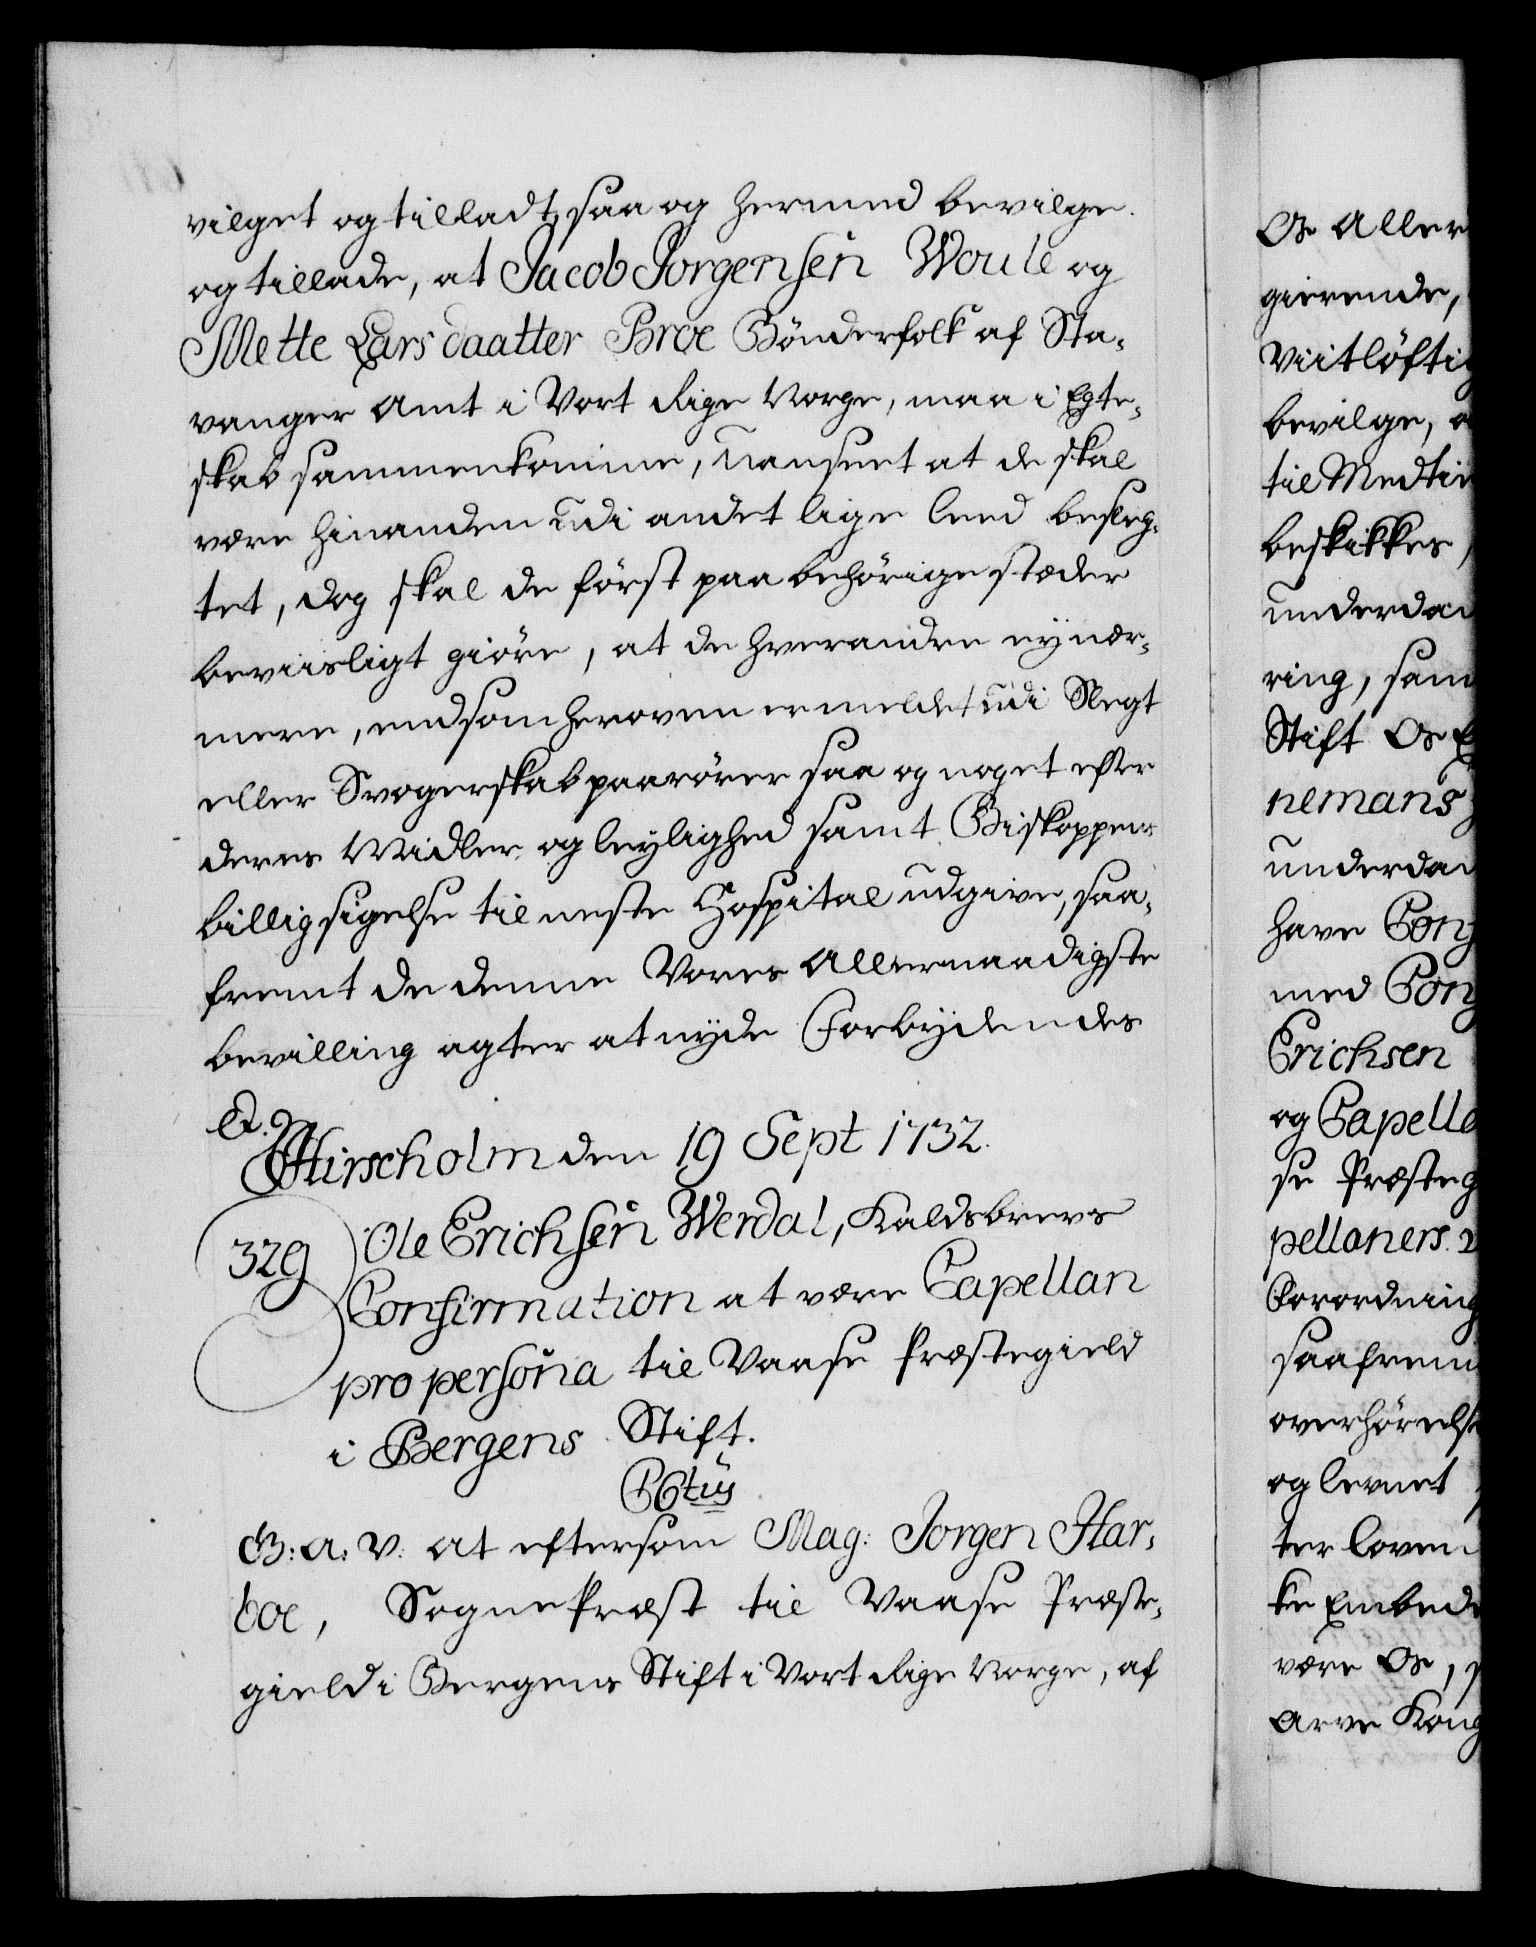 vilget og tilladt, saa og hermed bevilge
og tillade, at Jacob Jorgensen Woule og
Mette Larsdaatter Broe Bönderfolk af Sta-
vanger Amt i Vort Rige Norge, maa i Egte-
skab sammenkomme, uanseet at de skal
være hinanden udi andet lige leed besleg-
tet, dog skal de först paa behörige stæder
beviisligt giöre, at de hverandre ey nær-
mere, end som heroven er meldet udi Slegt
eller Svogerskab paarörer saa og noget efter
deres Midler og leylighed samt Biskoppens
billigsigelse til neste Hospital udgive, saa-
fremt de denne Vores Allernaadigste
bevilling agter at nyde Forbydendes
&.
Hirscholm den 19 Sept 1732.
329
Ole Erichsen Werdal, Kaldsbrevs
Confirmation at være Capellan
pro persona til Vaase Præstegield
i Bergens Stift.
G: A: V: At eftersom Mag: Jorgen Har-
boe, SognePræst til Vaase Præste-
gield i Bergens Stift i Vort Rige Norge, af
Os Aller
gierende,
Viitlöftig
bevilge, a
til Medtie
beskikkes,
underdan
ring, sam
Stift Os E
nemans
underdan
have Conf
med Conf
Erichsen
og Capella
se Præsteg
pellaners
Forordning
saafrem
overhörelse
og levnet
ter loven
ke Embede
være Os,
Arve Kong